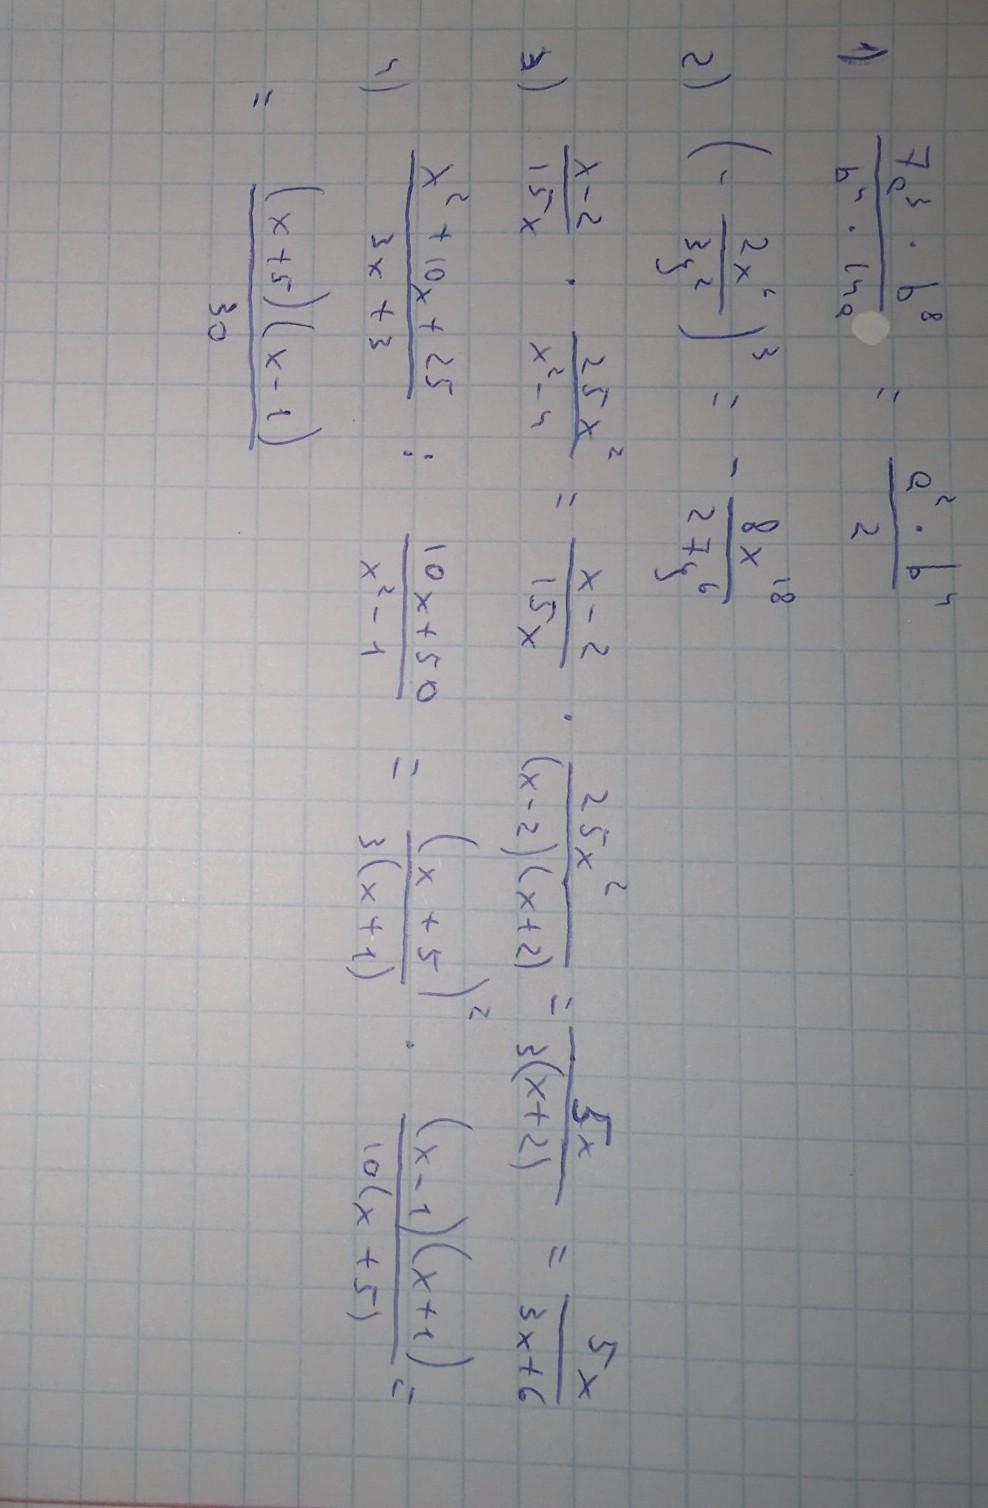 1) (7a³ · b⁸)/(b⁴ · 14a) = (a² · b⁴)/2
2) (- 2x⁶/3y²)³ = - 8x¹⁸/27y⁶
3) (x-2)/15x · 25x²/(x²-4) = (x-2)/15x · 25x²/((x-2)(x+2)) = 5x/(3(x+2)) = 5x/(3x+6)
4) (x²+10x+25)/(3x+3) : (10x+50)/(x²-1) = (x+5)²/(3(x+1)) · ((x-1)(x+1))/(10(x+5)) =
= ((x+5)(x-1))/30